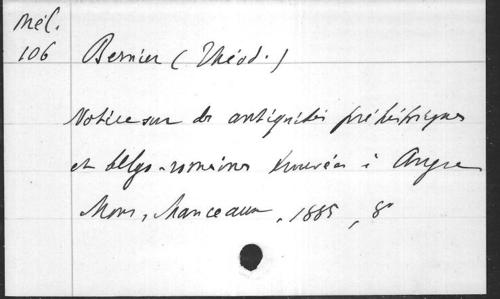 Mél.
106 Bernier (Théod.)
Notice sur des antiquités préhistoriques
et belgo-romaines trouvées à Angre
Mons, Manceaux, 1885, 8°